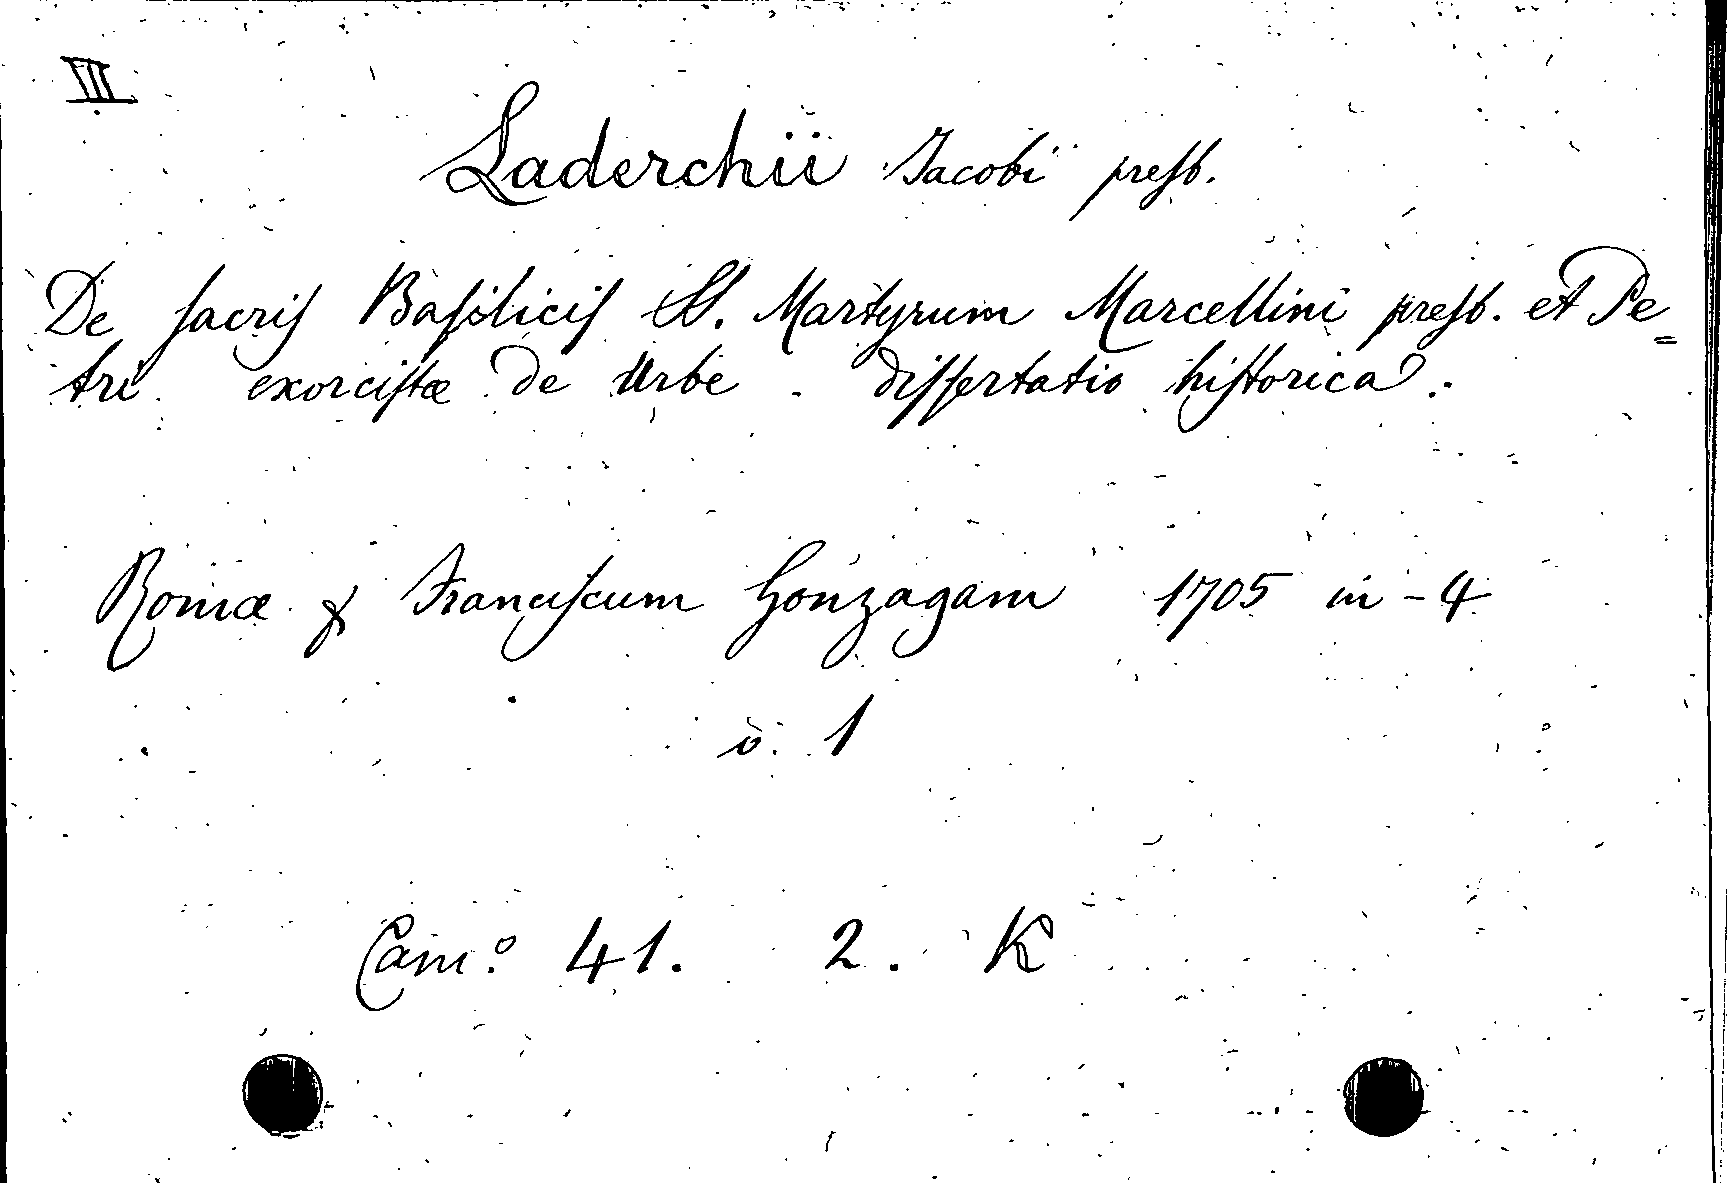 VII
Laderchii Jacobi presb.
De sacris Basilicis SS. Martyrum Marcellini presb. et Pe=
tri exorcistæ de Urbe. dissertatio historica.
Romæ & Franciscum Gonzagam 1705 in-4
v. 1
Cam.º 41. 2. K